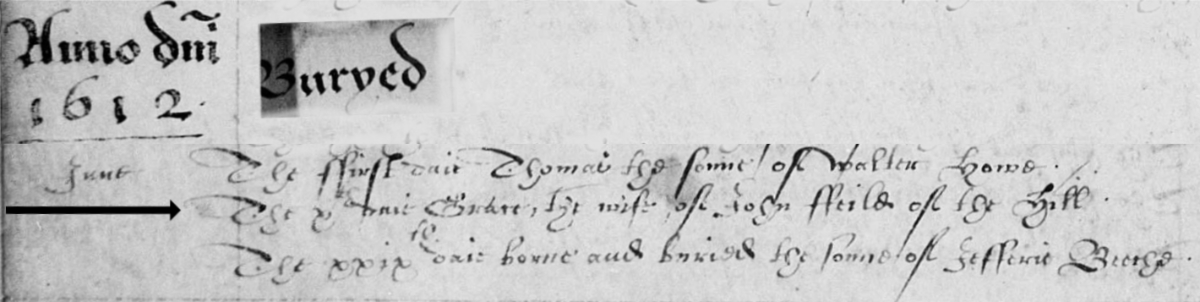 Anno dñi
1612.
Buryed
June The ffirst daie Thomas the sonne of Walter Howe.
The xth daie Grace, the wife of John ffeild of the Hill.
The xxixth daie borne and buried the sonne of Jefferie